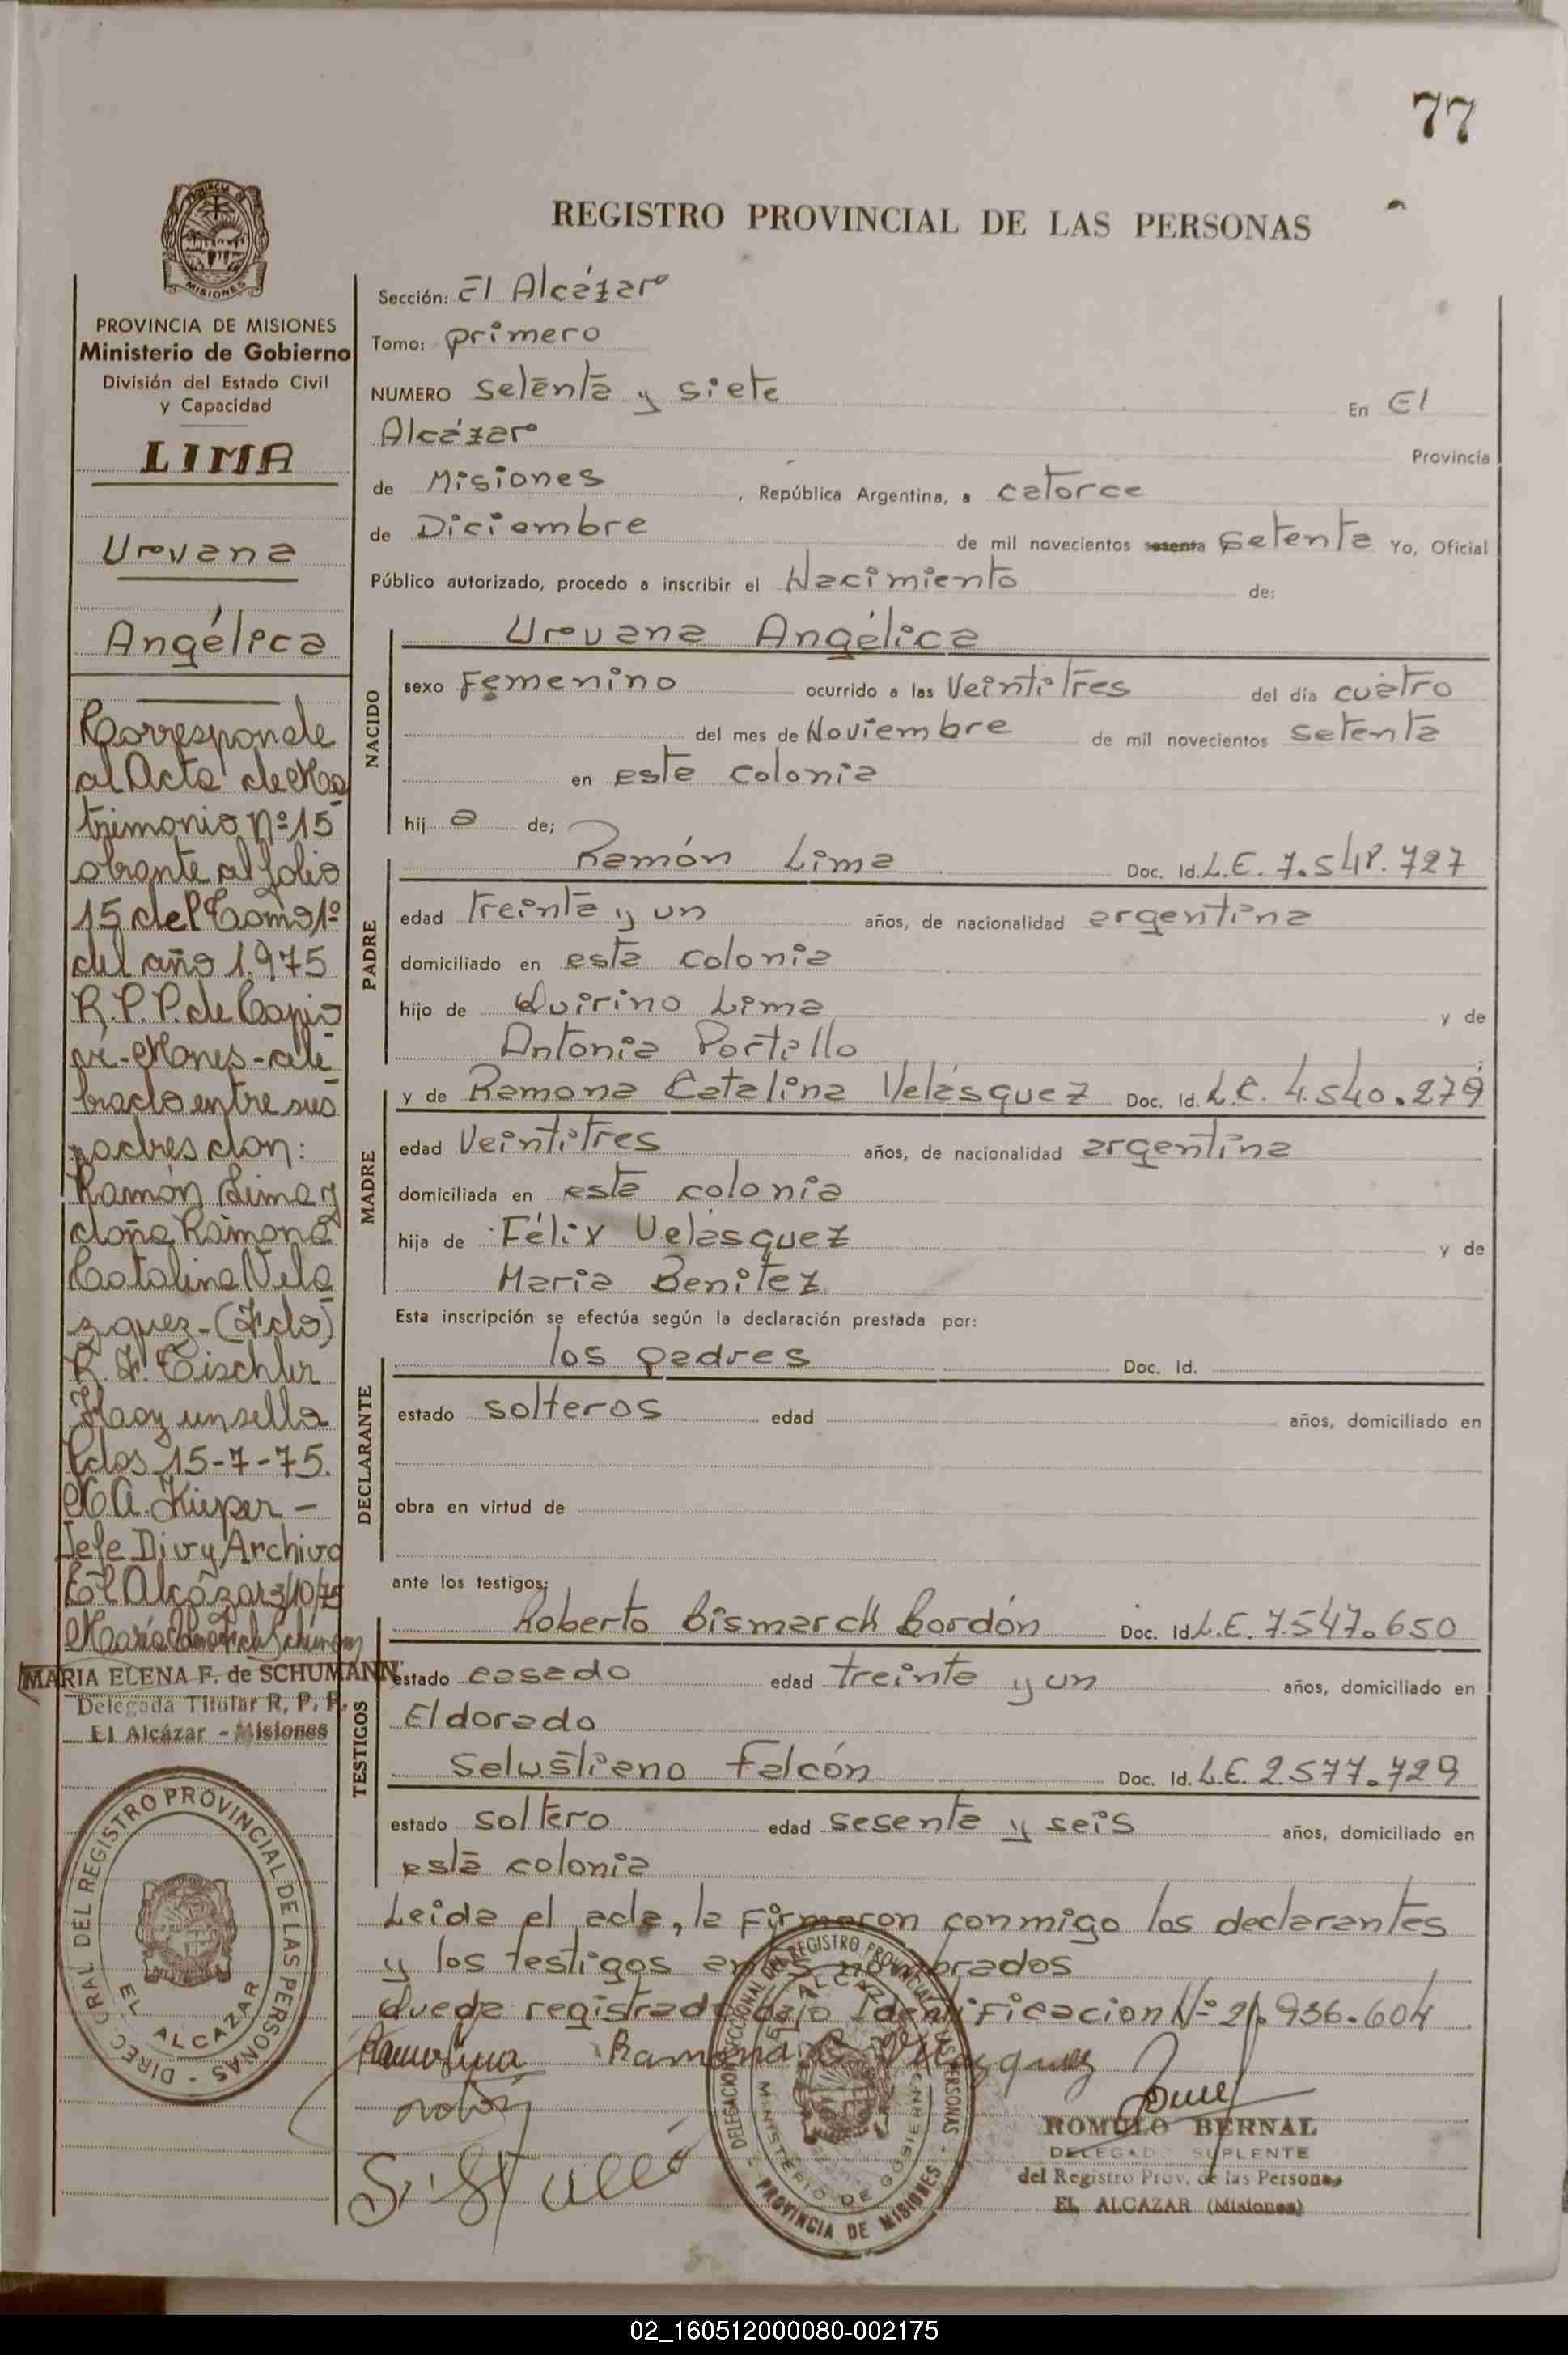 77
REGISTRO PROVINCIAL DE LAS PERSONAS
PROVINCIA DE MISIONES
Ministerio de Gobierno
División del Estado Civil
y Capacidad
LIMA
Urvana
Angélica
Corresponde
al Acta de Ma
trimonio Nº 15
obrante al folio
15 del Tomo 1º
del año 1.975
R.P.P. de Capio
vi-Mnes-cele
brado entre sus
padres don:
Ramón Lima y
doña Ramona
Catalina Vela
zquez-(Fdo)
R. F. Tischler
Hay un sello
Pdas 15-7-75.
A. Kieper -
Jefe Div y Archivo
El Alcázar 3/10/75
MARIA ELENA F. de SCHUMANN
Delegada Titular R. P. P.
El Alcázar - Misiones
DIREC. GRAL. DEL REGISTRO PROVINCIAL DE LAS PERSONAS -
EL ALCAZAR
Sección: El Alcázar
Tomo: primero
NUMERO setenta y siete En El
Alcázar Provincia
de Misiones, República Argentina, a catorce
de Diciembre de mil novecientos sesenta setenta Yo, Oficial
Público autorizado, procedo a inscribir el Nacimiento de:
Urvana Angélica
NACIDO
sexo Femenino ocurrido a las Veintitres del día cuatro
del mes de Noviembre de mil novecientos setenta
en este colonia
hij a de;
Ramón Lima Doc. Id. L.E. 7.548.727
PADRE
edad treinta y un años, de nacionalidad argentina
domiciliado en esta colonia
hijo de Quirino Lima y de
Antonia Portillo
y de Ramona Catalina Velásquez Doc. Id. L.C. 4.540.279
MADRE
edad Veintitres años, de nacionalidad argentina
domiciliada en esta colonia
hija de Félix Velásquez y de
Maria Benitez
Esta inscripción se efectúa según la declaración prestada por:
los padres Doc. Id.
DECLARANTE
estado solteros edad años, domiciliado en
obra en virtud de
ante los testigos;
Roberto Bismarck Bordón Doc. Id. L.E. 7.547.650
TESTIGOS
estado casado edad treinta y un años, domiciliado en
Eldorado
Salustiano Falcón Doc. Id. L.E. 2577.729
estado soltero edad sesenta y seis años, domiciliado en
esta colonia
Leida el acta, la firmaron conmigo los declarantes
y los testigos antes nombrados
Queda registrado bajo Identificacion Nº 21.936.604
Ramona Velasquez
DELEGACION SECCIONAL DEL REGISTRO PROVINCIAL DE LAS PERSONAS -
EL ALCAZAR
MINISTERIO DE GOBIERNO
PROVINCIA DE MISIONES
ROMULO BERNAL
DELEGADO SUPLENTE
del Registro Prov. de las Personas
EL ALCAZAR (Misiones)
02_160512000080-002175